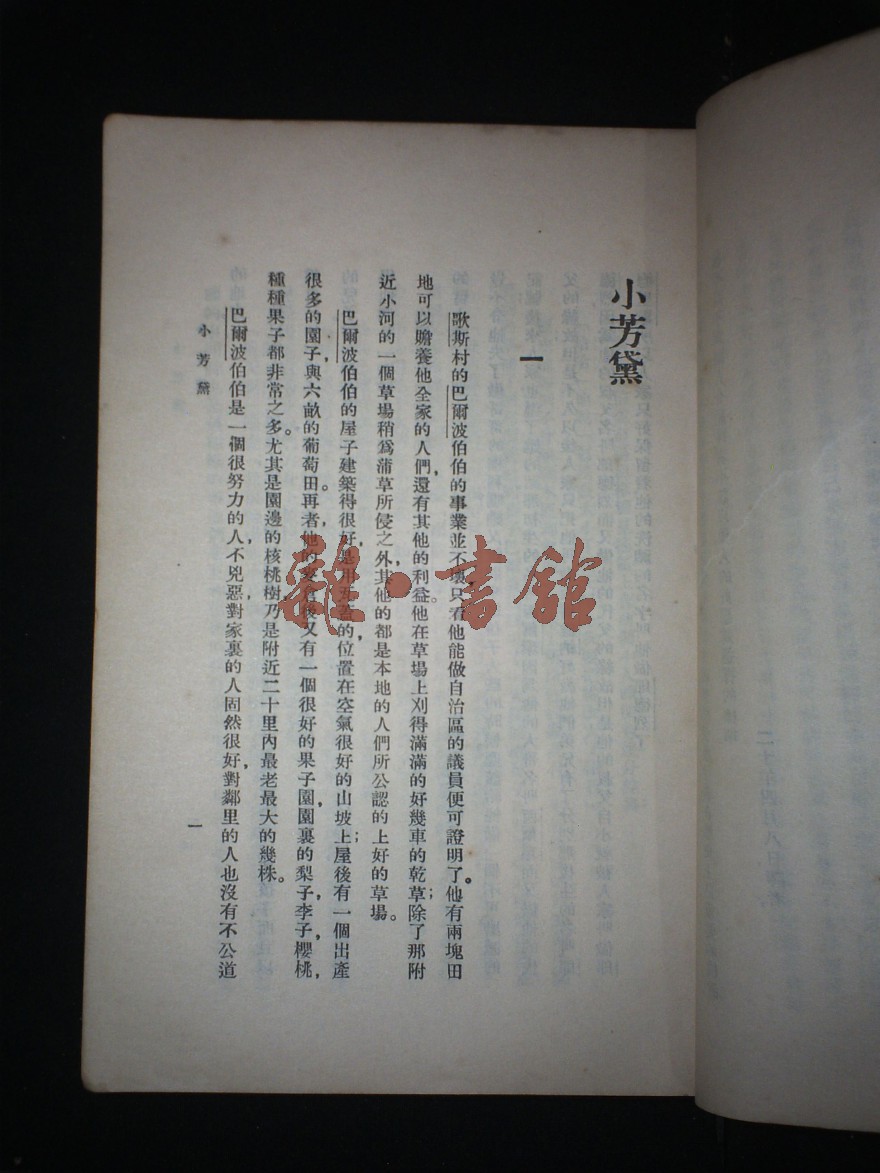 小芳黛
一
歌斯村的巴爾波伯伯的事業並不壞,只看他能做自治區的議員便可證明了。他有兩塊田
地可以贍養他全家的人們,還有其他的利益。他在草場上刈得滿滿的好幾車的乾草;除了那附
近小河的一個草場稍爲蒲草所侵之外,其他的都是本地的人們所公認的上好的草場。
巴爾波伯伯的屋子建築得很好,是用瓦蓋的,位置在空氣很好的山坡上;屋後有一個出產
很多的園子,與六畝的葡萄田。再者,他的麥倉後又有一個很好的果子園,園裏的梨子,李子,櫻桃,
種種果子都非常之多。尤其是園邊的核桃樹,乃是附近二十里內最老最大的幾株。
巴爾波伯伯是一個很努力的人,不兇惡,對家裏的人固然很好,對鄰里的人也沒有不公道
小芳黛
一
雜·書館